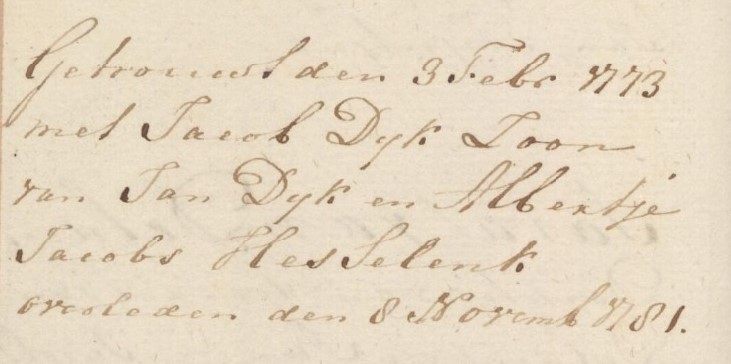 Getrouwt den 3 Febr 1773
met Jacob Dyk Zoon
van Jan Dyk en Albertje
Jacobs Hesselenk
overleden den 8 Novemb 1781.